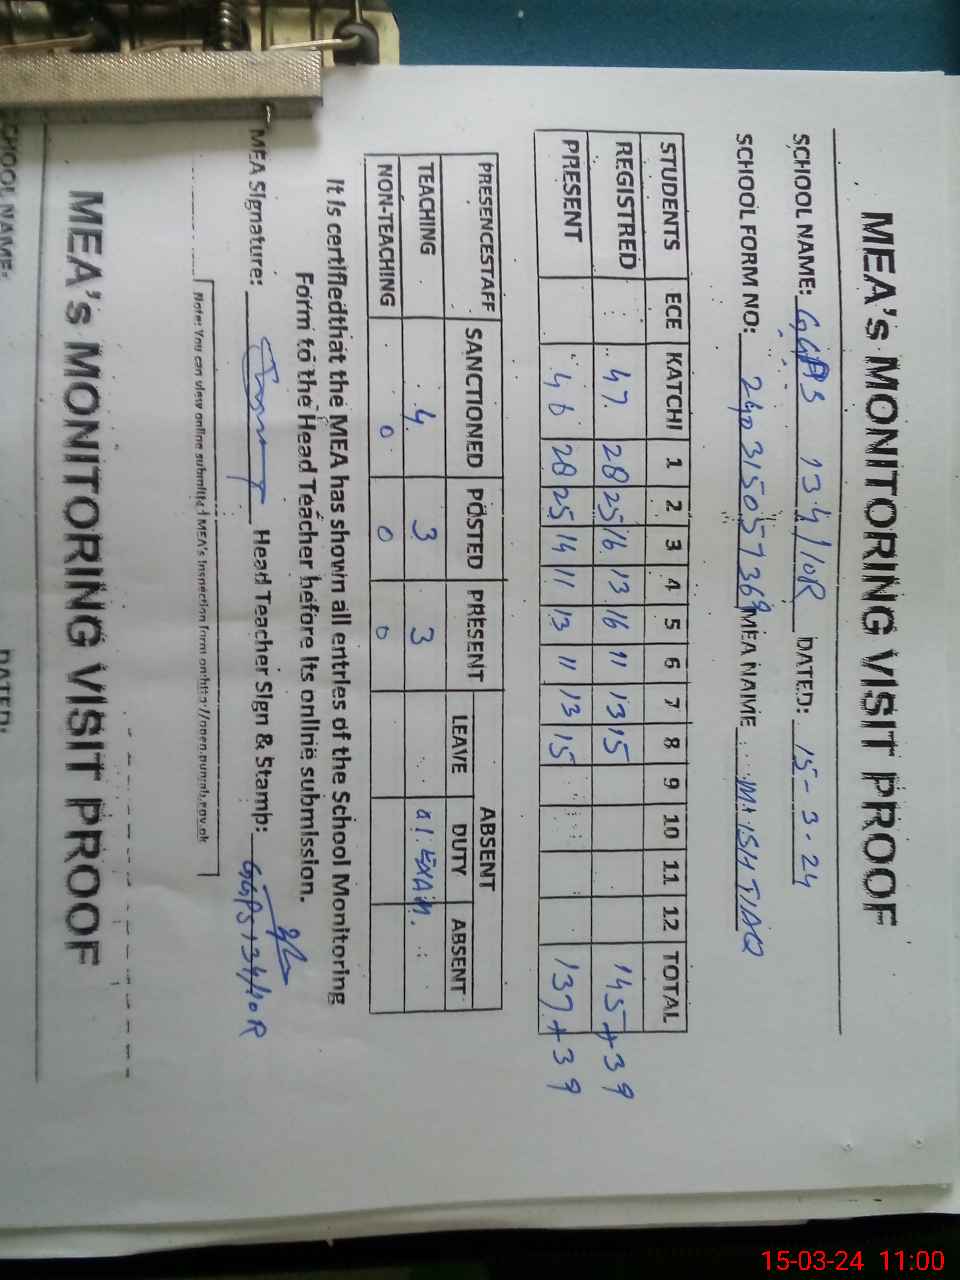 MEA's MONITORING VISIT PROOF
SCHOOL NAME: GGPS 134/10R DATED: 15-3-24
SCHOOL FORM NO: MEA NAME M. ISHTIAQ
STUDENTS ECE KATCHI 1 2 3 4 5 6 7 8 9 10 11 12 TOTAL
REGISTRED 47 28 25 16 13 16 11 13 15 145+39
PRESENT 46 28 25 14 11 13 11 13 15 137+39
PRESENCESTAFF SANCTIONED POSTED PRESENT ABSENT
LEAVE DUTY ABSENT
TEACHING 4 3 3 EXAM.
NON-TEACHING 0 0 0
It is certifiedthat the MEA has shown all entries of the School Monitoring
Form to the Head Teacher before its online submission.
MEA Signature: Head Teacher Sign & Stamp: GGPS 134/10R
Note: You can view online submitted MEA's Inspection form on:
MEA's MONITORING VISIT PROOF
SCHOOL NAME: DATED:
15-03-24 11:00